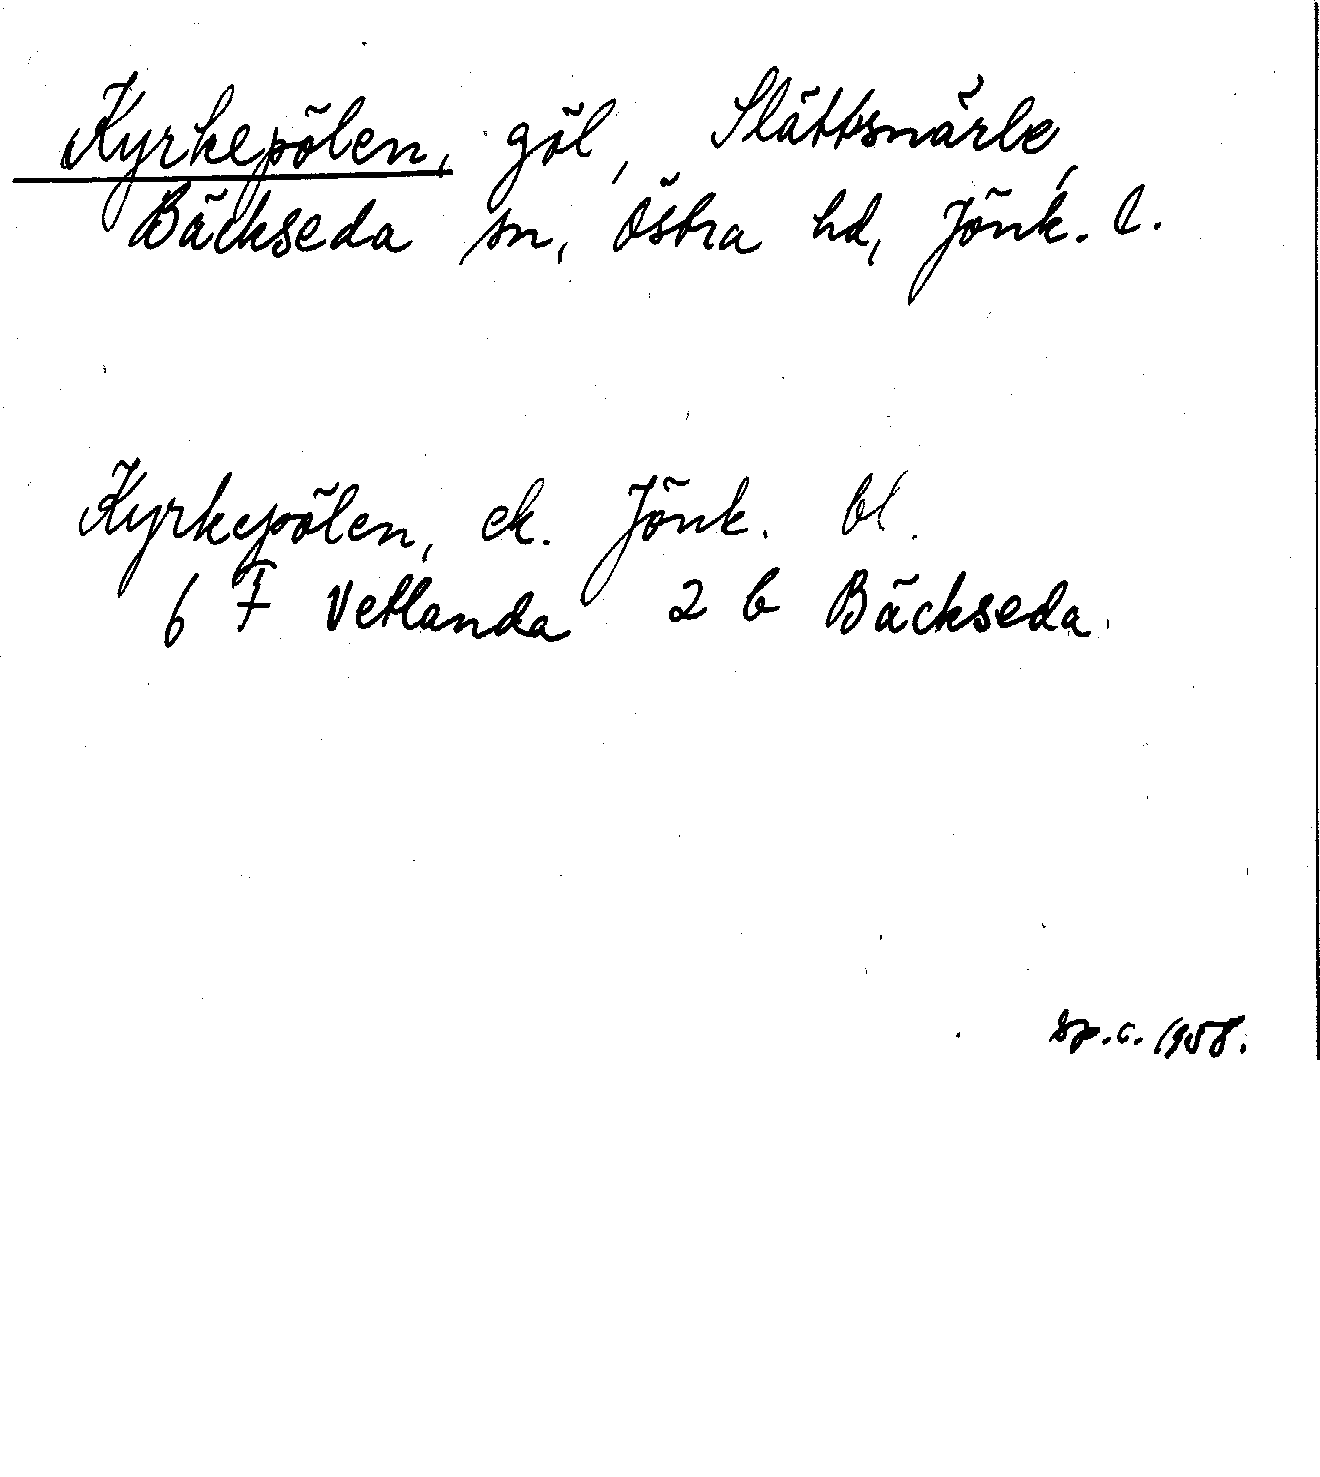 Kyrkepölen, göl, Slättsnärle,
Bäckseda sn, Östra hd, Jönk. l.
Kyrkepölen, ek. Jönk. bl.
6 F Vetlanda 2 b Bäckseda.
sp.c. 1958.